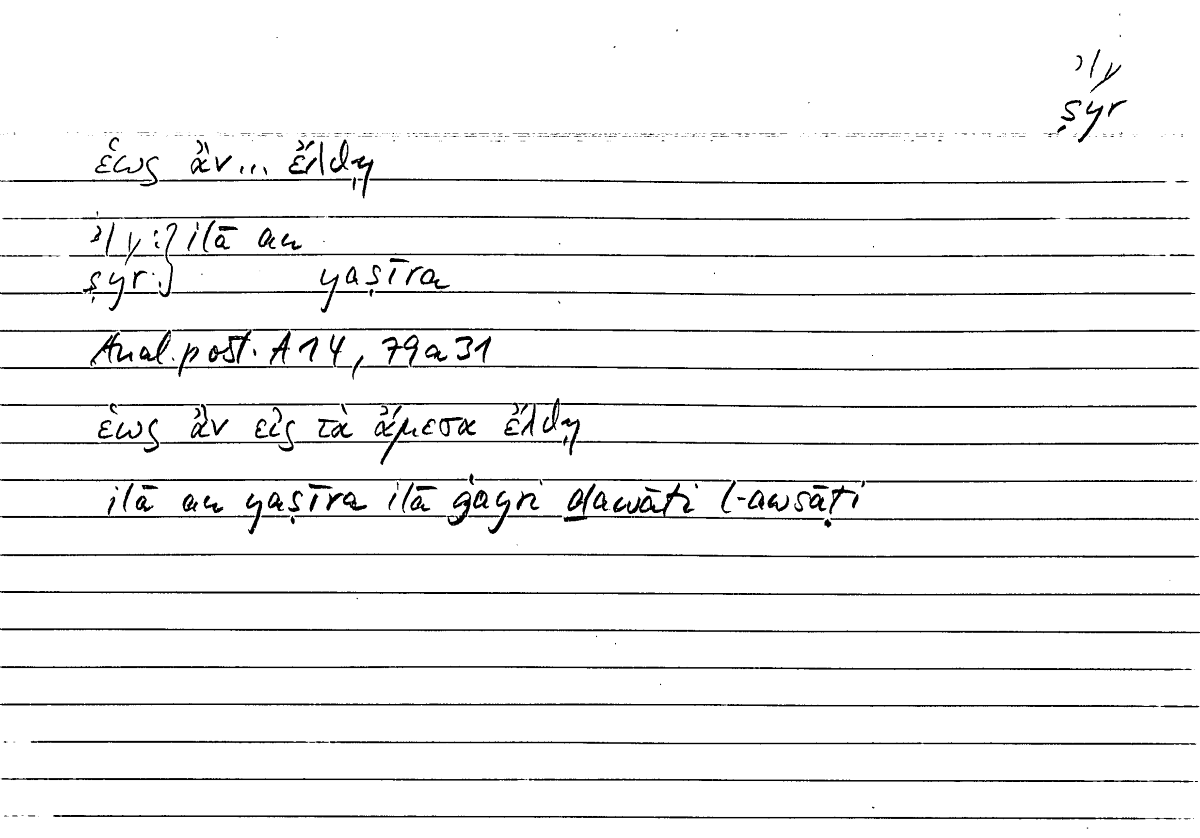 ʾly
ṣyr
ἕως ἂν... ἔλθῃ
ʾly:} ilā an
ṣyr:} yaṣīra
Anal. post. A 14, 79a31
ἕως ἂν εἰς τὰ ἄμεσα ἔλθῃ
ilā an yaṣīra ilā ġayri ḏawāti l-awsāṭi